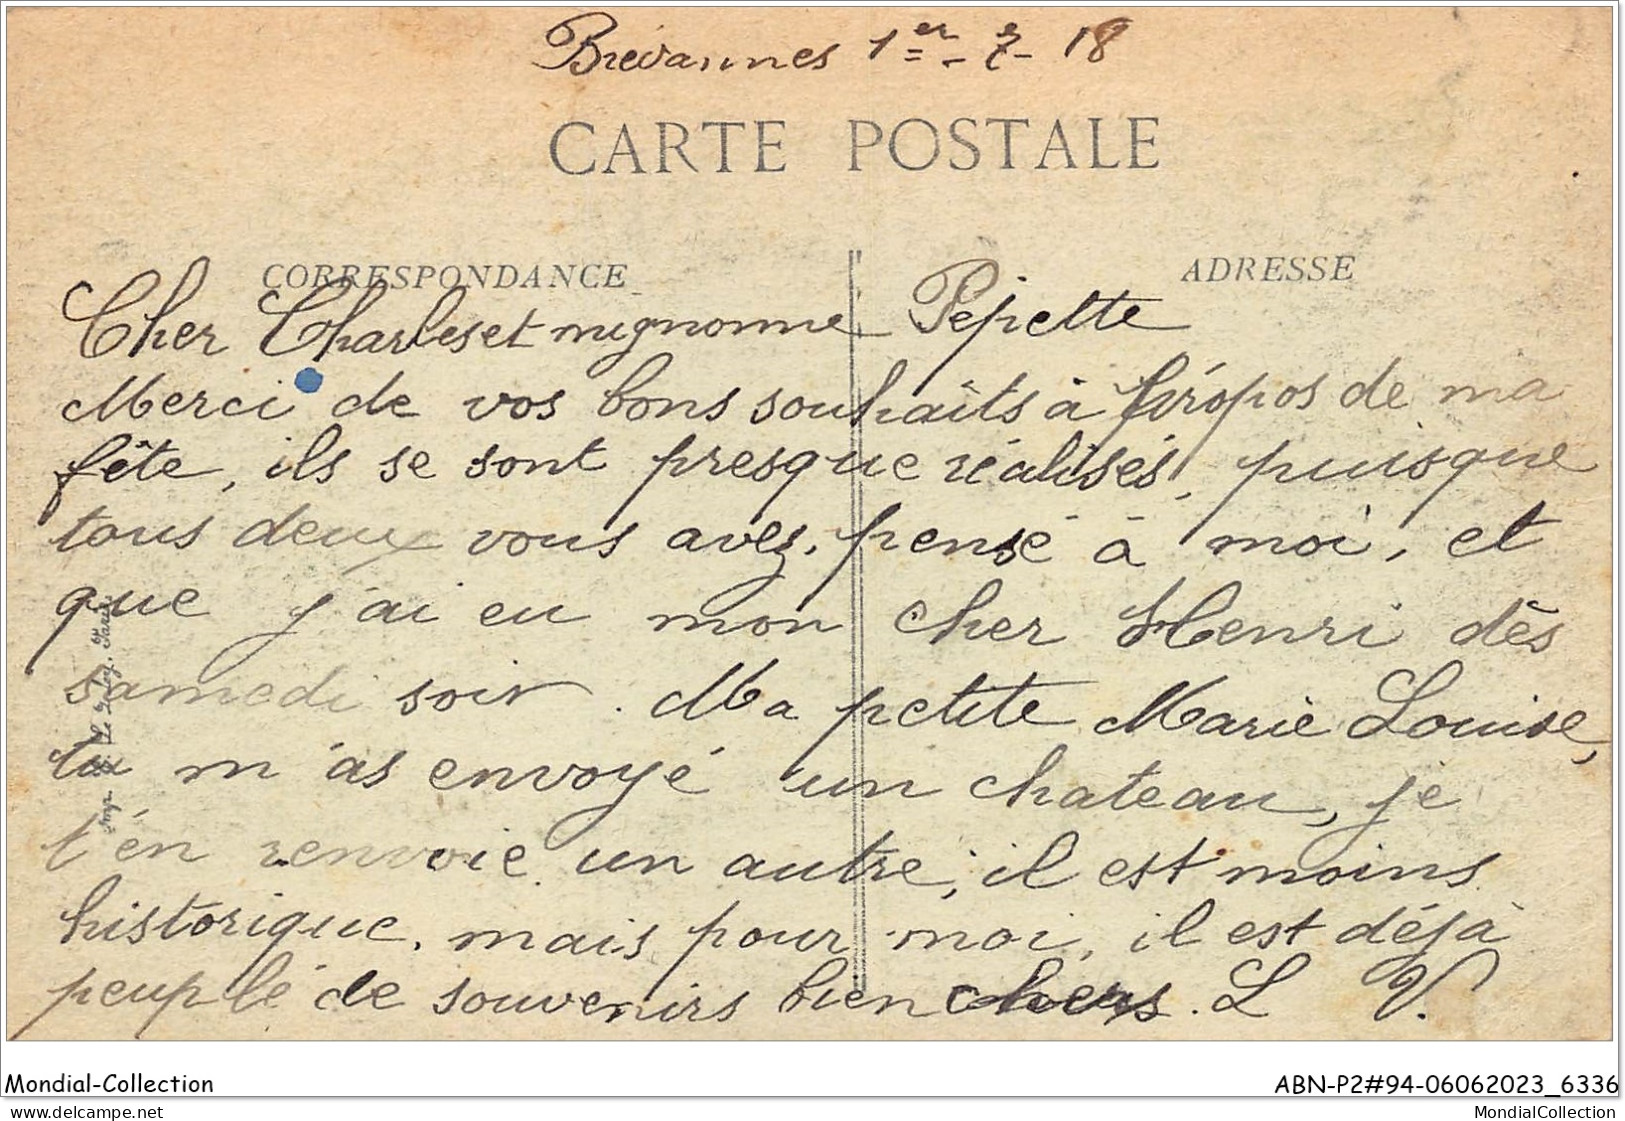 Brévannes 1er - 7 - 18
CARTE POSTALE
CORRESPONDANCE
ADRESSE
Cher Charles et mignonne Pépette
Merci de vos bons souhaits à propos de ma
fête, ils se sont presque réalisés, puisque
tous deux vous avez pensé à moi, et
que j'ai eu mon cher Henri dès
samedi soir. Ma petite Marie Louise,
tu m'as envoyé un chateau, je
t'en renvoie un autre, il est moins
historique, mais pour moi, il est déjà
peuplé de souvenirs bien chers. L V.
Imp. Paris
Mondial-Collection
ABN-P2#94-06062023_6336
www.delcampe.net
MondialCollection